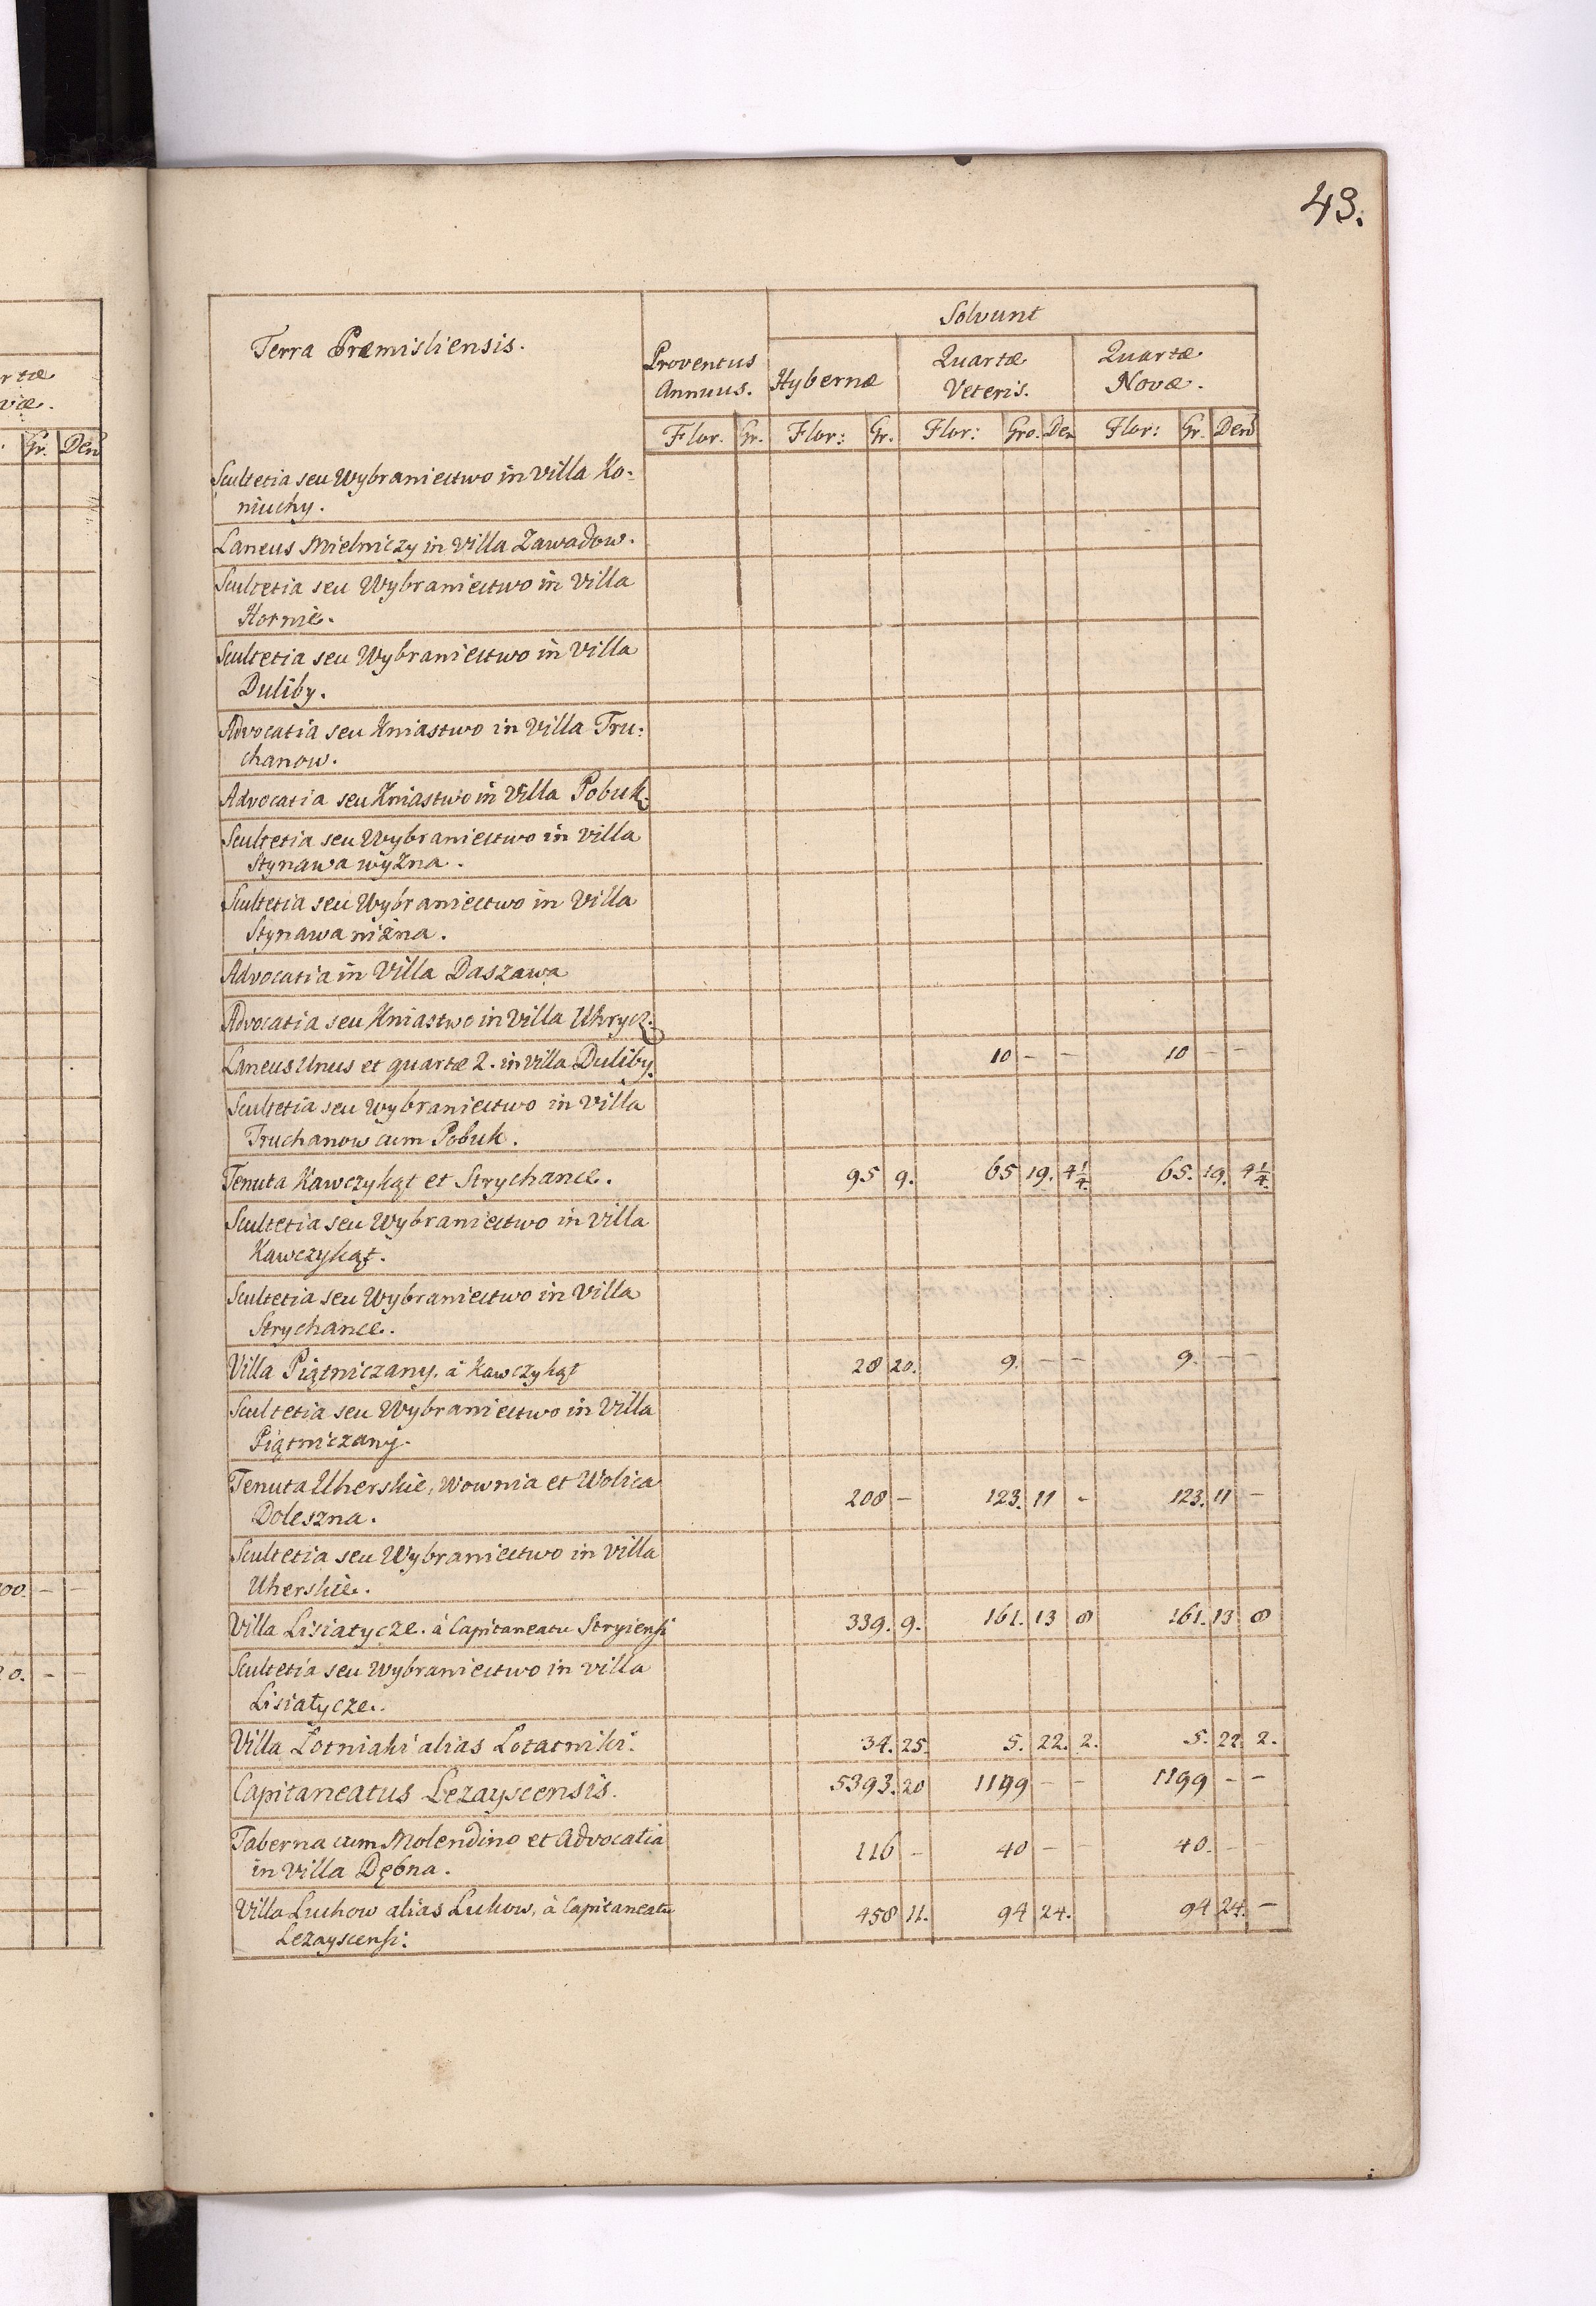 43.
Solvunt
Terra Præmisliensis.
Proventus Annuus. Hybernæ Quartæ Veteris. Quartæ Novæ.
Flor. Gr. Flor: Gr. Flor: Gro. Den Flor: Gr. Den
Scultetia seu Wybraniectwo in Villa Ko-
niuchy.
Laneus Mielniczy in Villa Zawadow.
Scultetia seu Wybraniectwo in Villa
Hornie.
Scultetia seu Wybraniectwo in Villa
Duliby.
Advocatia seu Kniastwo in Villa Tru:
chanow.
Advocatia seu Kniastwo in Villa Pobuk.
Scultetia seu Wybraniectwo in Villa
Stynawa wyżna.
Scultetia seu Wybraniectwo in Villa
Stynawa niżna.
Advocatia in Villa Daszawa
Advocatia seu Kniastwo in Villa Uhrycz.
Laneus Unus et quartæ 2. in villa Duliby. 10 - - 10 - -
Scultetia seu Wybraniectwo in Villa
Truchanow cum Pobuk.
Tenuta Kawczykąt et Strychance. 95 9. 65 19. 4¼ 65. 19. 4¼.
Scultetia seu Wybraniectwo in Villa
Kawczykąt.
Scultetia seu Wybraniectwo in Villa
Strychance.
Villa Piątniczany. à Kawczykąt 28 20. 9. - - 9. - -
Scultetia seu Wybraniectwo in Villa
Piątniczany.
Tenuta Uherskie, Wownia et Wolica
Doleszna. 208 - 123. 11 - 123. 11 -
Scultetia seu Wybraniectwo in Villa
Uherskie.
Villa Lisiatycze. à Capitaneatu Stryiensi 339. 9. 161. 13 8 161. 13 8
Scultetia seu Wybraniectwo in villa
Lisiatycze.
Villa Łotniaki alias Łotatniki. 34. 25. 5. 22. 2. 5. 22 2.
Capitaneatus Lezayscensis. 5393. 20 1199 - - 1199 - -
Taberna cum Molendino et Advocatia
in Villa Dębna. 116 - 40 - - 40. - -
Villa Luchow alias Lukow, à Capitaneatu 458 11. 94 24. 94 24. -
Lezayscensi: